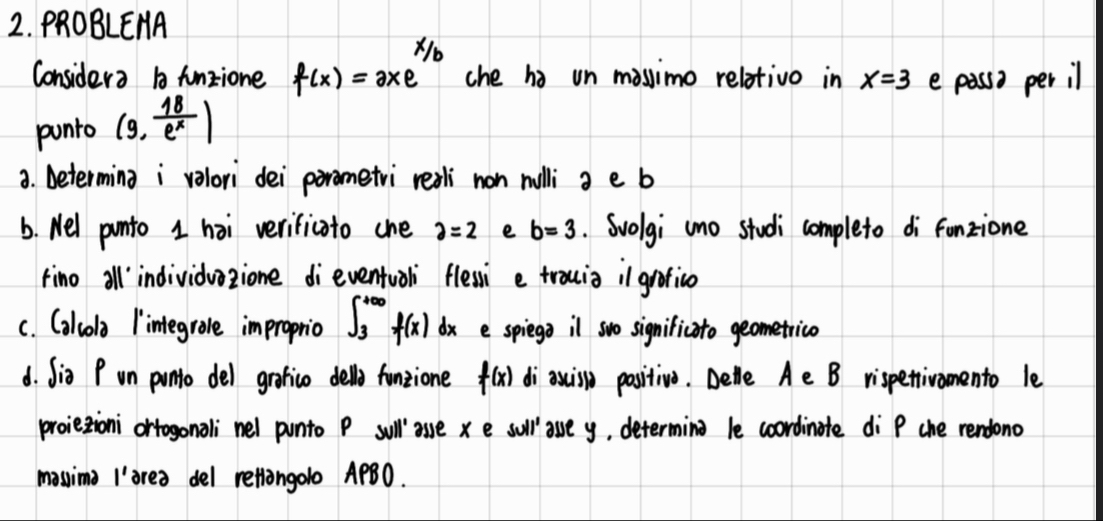 2. PROBLEMA
Considera la funzione f(x) = axe^{x/b} che ha un massimo relativo in x=3 e passa per il
punto (9, \frac{18}{e^x})
a. Determina i valori dei parametri reali non nulli a e b
b. Nel punto 1 hai verificato che a=2 e b=3. Svolgi uno studi completo di funzione
fino all'individuazione di eventuali flessi e traccia il grafico
c. Calcola l'integrale improprio ∫_3^{+∞} f(x) dx e spiega il suo significato geometrico
d. Sia P un punto del grafico della funzione f(x) di ascissa positiva. Dette A e B rispettivamento le
proiezioni ortogonali nel punto P sull'asse x e sull'asse y, determina le coordinate di P che rendono
massima l'area del rettangolo APBO.